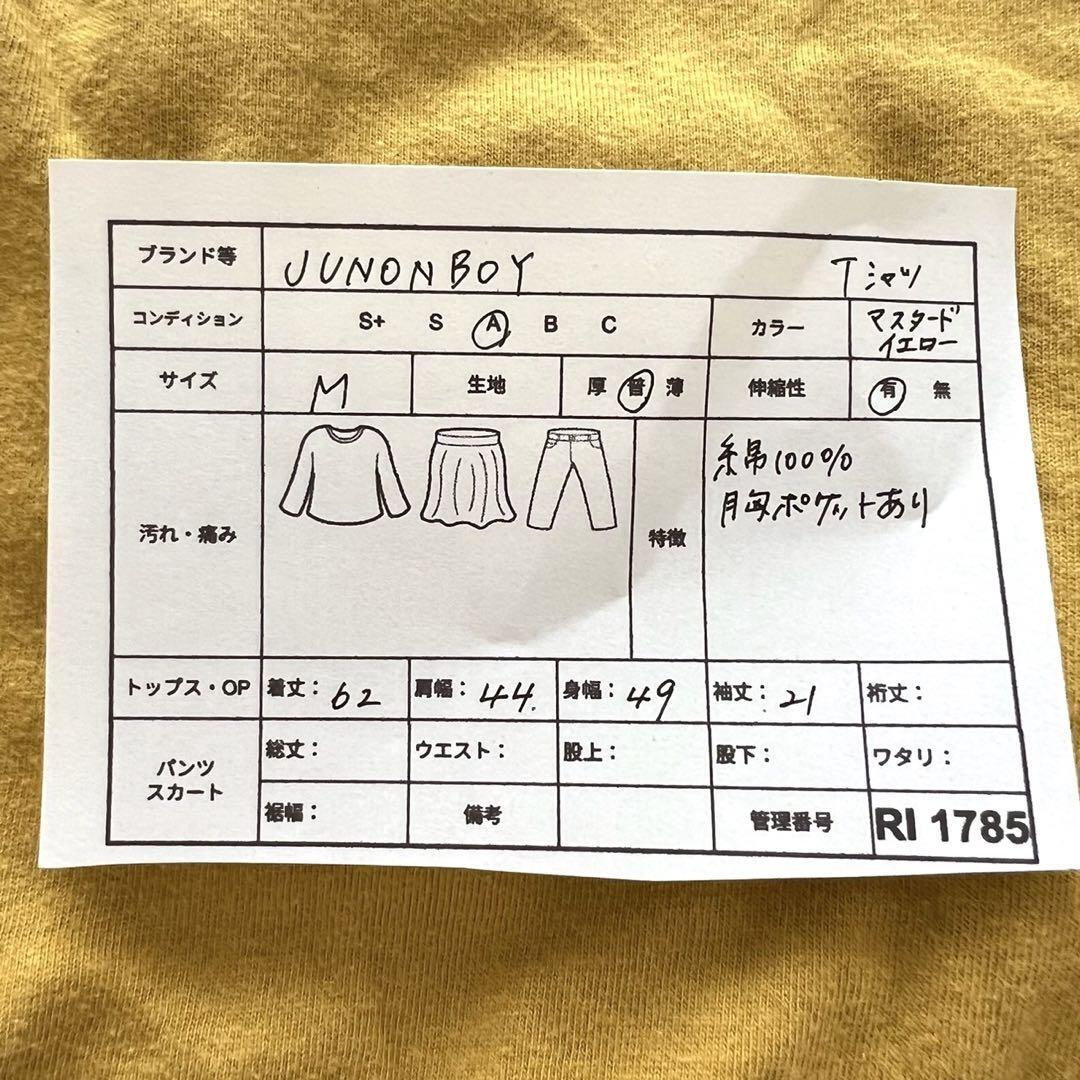 ブランド等 JUNONBOY Tシャツ
コンディション S+ S A B C カラー マスタード
イエロー
サイズ M 生地 厚 普 薄 伸縮性 有 無
汚れ・痛み 特徴 綿100%
胸ポケットあり
トップス・OP 着丈: 62 肩幅: 44. 身幅: 49 袖丈: 21 裄丈:
パンツ
スカート
総丈: ウエスト: 股上: 股下: ワタリ:
裾幅: 備考 管理番号 RI 1785